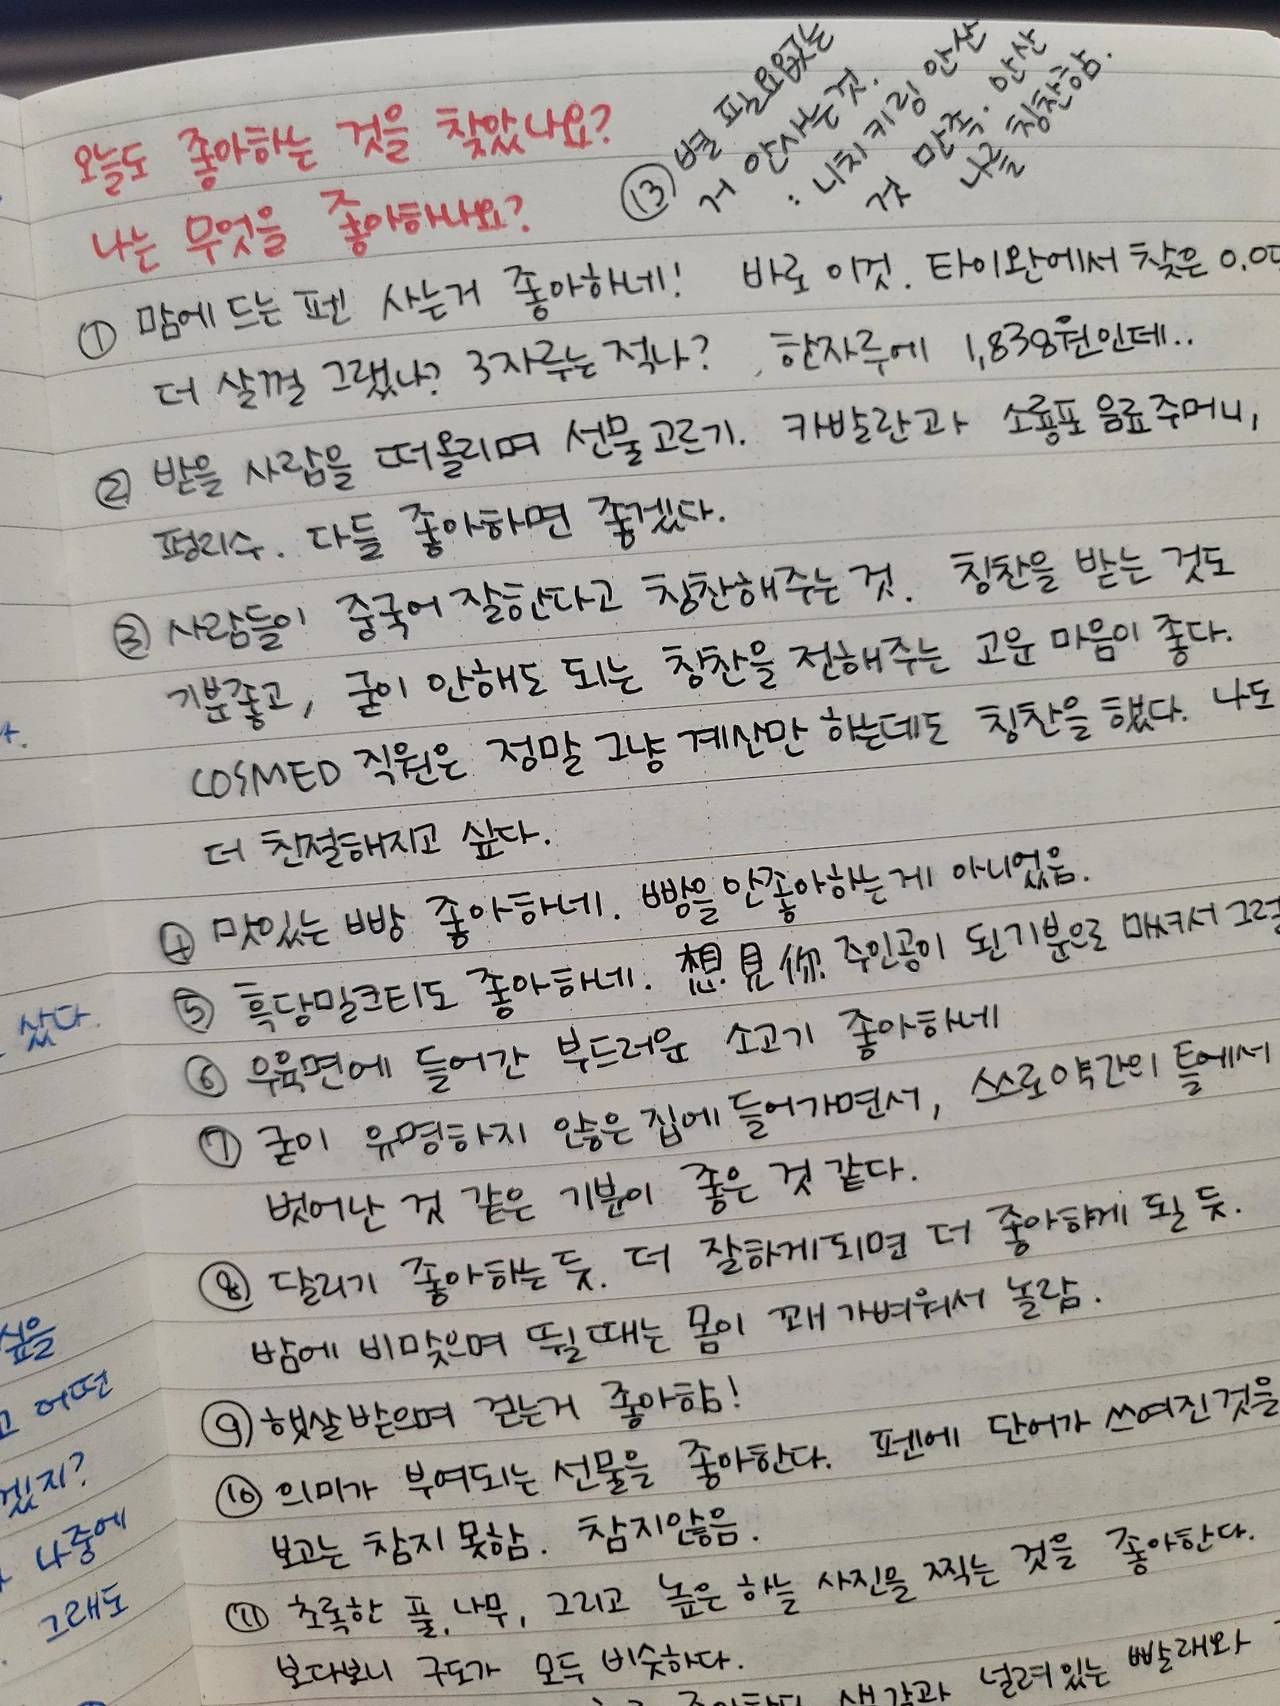 오늘도 좋아하는 것을 찾았나요?
나는 무엇을 좋아하나요?
⑬ 별 필요없는
거 안사는것.
: 니치 키링 안산
것 만족. 안산
나를 칭찬함.
① 맘에 드는 펜 사는거 좋아하네! 바로 이것. 타이완에서 찾은 0.05
더 살껄 그랬나? 3자루는 적나? 한자루에 1,838원인데..
② 받을 사람을 떠올리며 선물고르기. 카발란과 소룡포 음료주머니,
펑리수. 다들 좋아하면 좋겠다.
③ 사람들이 중국어 잘한다고 칭찬해주는 것. 칭찬을 받는 것도
기분좋고, 굳이 안해도 되는 칭찬을 전해주는 고운 마음이 좋다.
COSMED 직원은 정말 그냥 계산만 하는데도 칭찬을 했다. 나도
더 친절해지고 싶다.
④ 맛있는 빵 좋아하네. 빵을 안좋아하는게 아니었음.
⑤ 흑당밀크티도 좋아하네. 想見你 주인공이 된기분으로 마셔서 그럼
⑥ 우육면에 들어간 부드러운 소고기 좋아하네
⑦ 굳이 유명하지 않은 집에 들어가면서, 스스로 약간의 틀에서
벗어난 것 같은 기분이 좋은 것 같다.
⑧ 달리기 좋아하는 듯. 더 잘하게되면 더 좋아하게 될 듯.
밤에 비맞으며 뛸 때는 몸이 꽤 가벼워서 놀람.
⑨ 햇살받으며 걷는거 좋아함!
⑩ 의미가 부여되는 선물을 좋아한다. 펜에 단어가 쓰여진것을
보고는 참지 못함. 참지않음.
⑪ 초록한 풀, 나무, 그리고 높은 하늘 사진을 찍는 것을 좋아한다.
보다보니 구도가 모두 비슷하다.
좋아한다 색감과 널려있는 빨래와
샀다.
싶을
고 어떤
겠지?
나중에
그래도